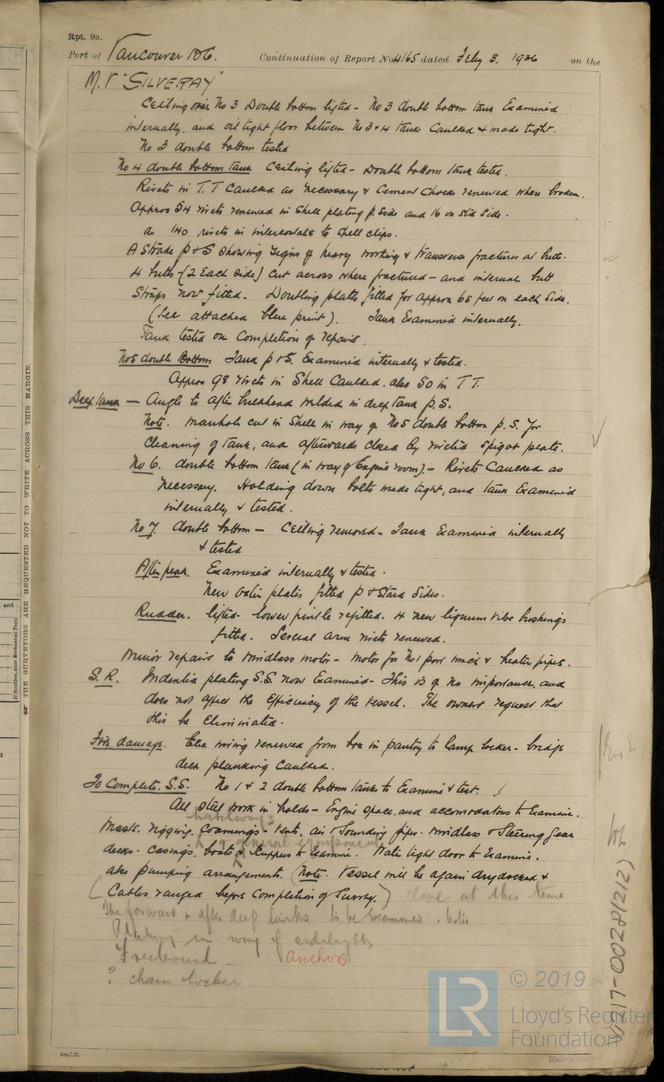 Rpt. 9a.
Port of Vancouver BC. Continuation of Report No 4165 dated Feby 3. 1936 on the
M.V "SILVERAY"
Ceiling over No 3 Double bottom lifted - No 3 double bottom tank Examined
internally, and oil tight floor between No 3 & 4 tank Caulked & made tight.
No 3 double bottom tested
No 4 double bottom tank Ceiling lifted - Double bottom tank tested.
Rivets in T.T Caulked as necessary & Cement Chocks renewed where broken.
Approx 54 rivets renewed in Shell plating P. Side and 16 on Std Side.
140 rivets in intercostals to shell clips.
A Strake P & S showing signs of heavy working & transverse fractures at butts.
4 butts - (2 Each Side) Cut across where fractured - and internal butt
Straps now fitted. Doubling plates fitted for approx 65 feet on each Side.
(See attached blue print). Tank Examined internally.
Tank tested on Completion of repairs.
No 5 double Bottom Tank P & S. Examined internally & tested.
Approx 98 rivets in Shell Caulked. also 50 in T T.
Deep tank - Angle to after bulkhead welded in deep tank P. S.
Note. Manhole cut in Shell in way of No 5 double bottom P. S. for
Cleaning of tank, and afterwards closed by riveted spigot plate.
No 6. double bottom tank (in way of Engine room) - Rivets Caulked as
necessary. Holding down bolts made tight, and tank Examined
internally & tested.
No 7 double bottom - Ceiling removed - Tank Examined internally
& tested
After peak. Examined internally & tested.
New plates fitted P & Starb Sides.
Rudder. lifted - lower pintle refitted. 4 new lignum vitae bushings
fitted. Several arm rivets renewed.
Minor repairs to windlass motor - Motor for No 1 port winch & heater pipes.
S. R. Indented plating S.S. now Examined - This is of no importance, and
does not affect the Efficiency of the vessel. The owners request that
this be Eliminated.
Fire damage. Elec wiring renewed from box in pantry to lamp locker - bridge
deck planking caulked.
To Complete. S.S. No 1 & 2 double bottom tanks to Examine & test.
All steel work in holds - Engine space, and accomodations to Examine.
hatchways
Masts. rigging. Coamings - Vents, air & Sounding pipes. Windlass & Steering gear
& general equipment
decks - Casings, boats & Scuppers to Examine. Water tight door to Examine.
also pumping arrangements. (Note. Vessel will be again drydocked &
(Cables ranged before Completion of Survey.) done at this time
The forward & after deep tanks to be examined & tested
Plating in way of sidelights
Freeboard - Anchors
? chain locker
THE SURVEYORS ARE REQUESTED NOT TO WRITE ACROSS THIS MARGIN.
V217-0028(212)
© 2019
LR
Lloyd's Register
Foundation